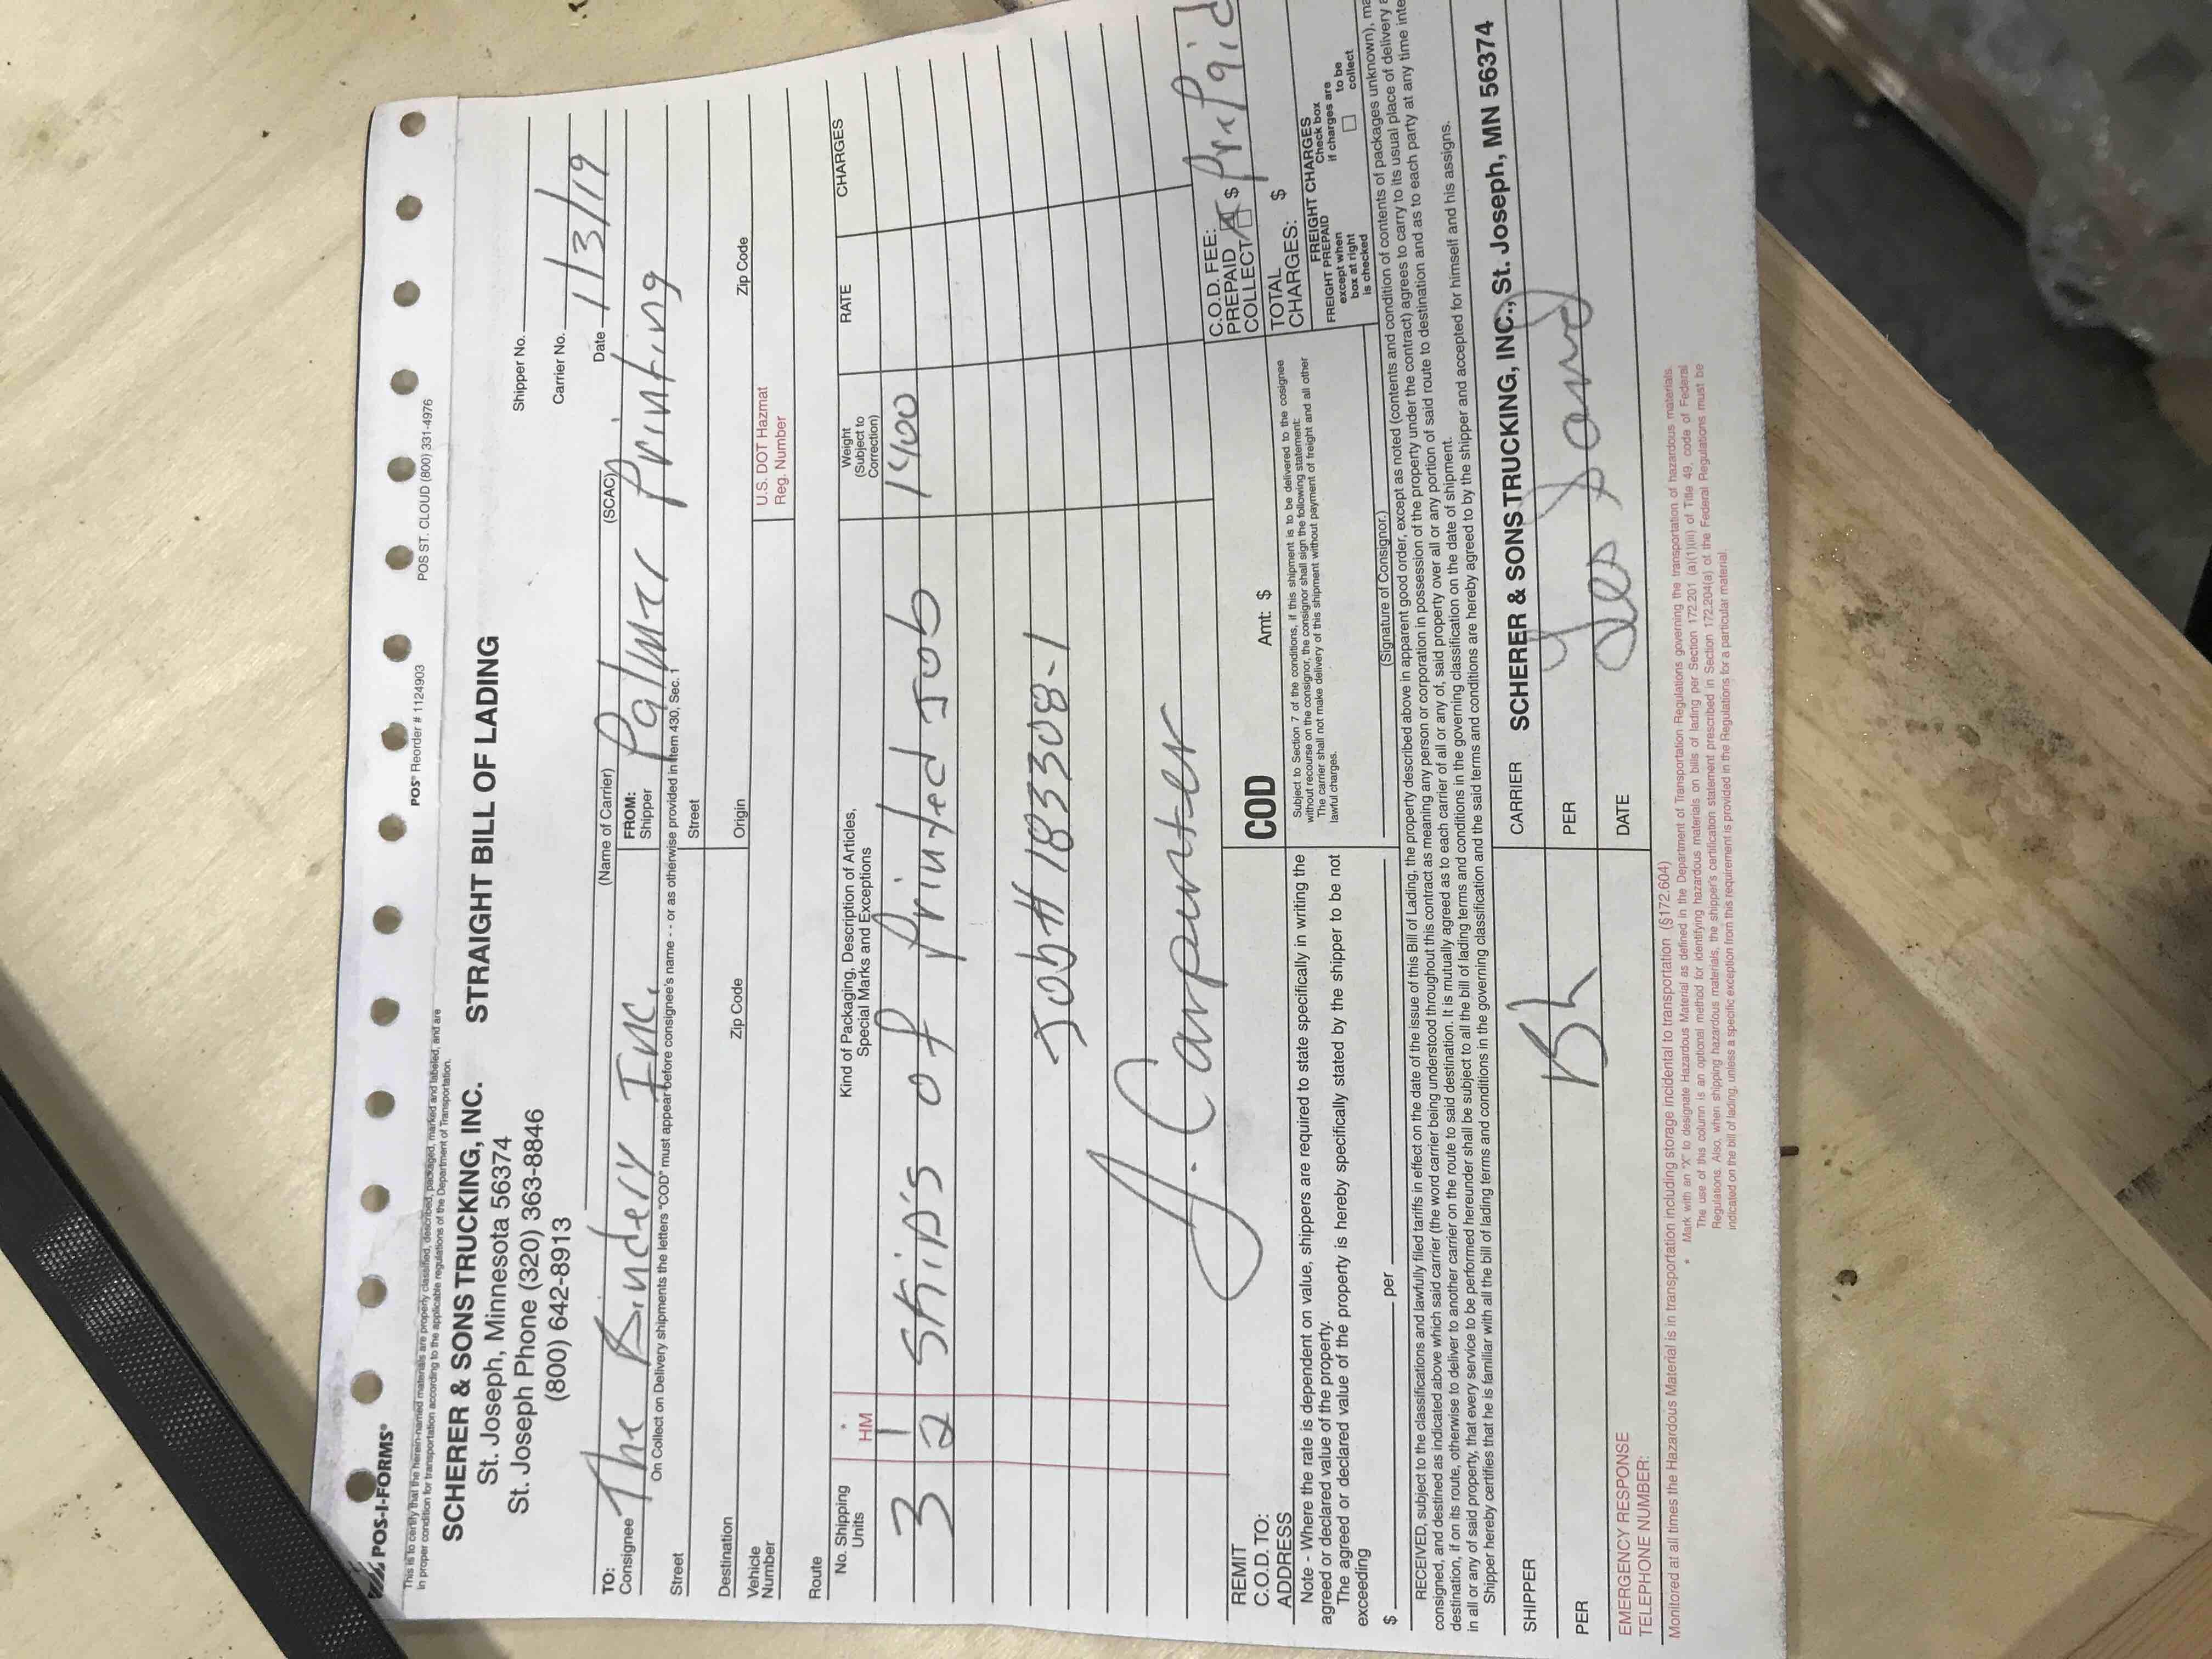 POS-I-FORMS®
POS® Reorder # 1124903
POS ST. CLOUD (800) 331-4976
This is to certify that the herein-named materials are properly classified, described, packaged, marked and labeled, and are
in proper condition for transportation according to the applicable regulations of the Department of Transportation.
SCHERER & SONS TRUCKING, INC.
STRAIGHT BILL OF LADING
St. Joseph, Minnesota 56374
St. Joseph Phone (320) 363-8846
(800) 642-8913
Shipper No.
Carrier No.
Date 1/3/19
(Name of Carrier)
(SCAC)
TO:
Consignee The Bindery Inc.
FROM:
Shipper Palmer Printing
On Collect on Delivery shipments the letters "COD" must appear before consignee's name - - or as otherwise provided in Item 430, Sec. 1
Street
Street
Destination
Zip Code
Origin
Zip Code
Vehicle
Number
U.S. DOT Hazmat
Reg. Number
Route
No. Shipping
Units
*
HM
Kind of Packaging, Description of Articles,
Special Marks and Exceptions
Weight
(Subject to
Correction)
RATE
CHARGES
3 Skids of Printed Job 1400
Job# 183308-1
A. Carpenter
REMIT
C.O.D. TO:
ADDRESS
COD
Amt: $
C.O.D. FEE:
PREPAID
COLLECT $ PrePaid
Note - Where the rate is dependent on value, shippers are required to state specifically in writing the
agreed or declared value of the property.
The agreed or declared value of the property is hereby specifically stated by the shipper to be not
exceeding
$ per
Subject to Section 7 of the conditions, if this shipment is to be delivered to the cosignee
without recourse on the consignor, the consignor shall sign the following statement:
The carrier shall not make delivery of this shipment without payment of freight and all other
lawful charges.
(Signature of Consignor.)
TOTAL
CHARGES: $
FREIGHT CHARGES
FREIGHT PREPAID
except when
box at right
is checked
Check box
if charges are
to be
collect
RECEIVED, subject to the classifications and lawfully filed tariffs in effect on the date of the issue of this Bill of Lading, the property described above in apparent good order, except as noted (contents and condition of contents of packages unknown),
consigned, and destined as indicated above which said carrier (the word carrier being understood throughout this contract as meaning any person or corporation in possession of the property under the contract) agrees to carry to its usual place of delivery
destination, if on its route, otherwise to deliver to another carrier on the route to said destination. It is mutually agreed as to each carrier of all or any of, said property over all or any portion of said route to destination and as to each party at any time
in all or any of said property, that every service to be performed hereunder shall be subject to all the bill of lading terms and conditions in the governing classification on the date of shipment.
Shipper hereby certifies that he is familiar with all the bill of lading terms and conditions in the governing classification and the said terms and conditions are hereby agreed to by the shipper and accepted for himself and his assigns.
SHIPPER
CARRIER SCHERER & SONS TRUCKING, INC., St. Joseph, MN 56374
PER
PER
DATE
EMERGENCY RESPONSE
TELEPHONE NUMBER:
Monitored at all times the Hazardous Material is in transportation including storage incidental to transportation (§172.604)
* Mark with an "X" to designate Hazardous Material as defined in the Department of Transportation Regulations governing the transportation of hazardous materials.
The use of this column is an optional method for identifying hazardous materials on bills of lading per Section 172.201 (a)(1)(iii) of Title 49, code of Federal
Regulations. Also, when shipping hazardous materials, the shipper's certification statement prescribed in Section 172.204(a) of the Federal Regulations must be
indicated on the bill of lading, unless a specific exception from this requirement is provided in the Regulations for a particular material.